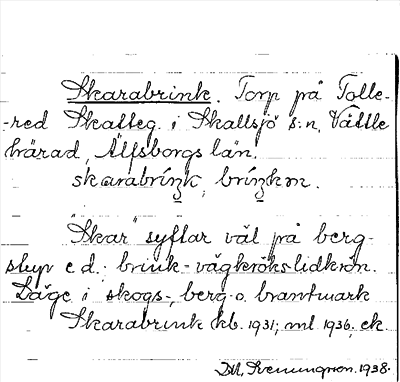 Skarabrink. Torp på Tolle-
-red Skatteg. i Skallsjö s:n, Vättle
härad, Älfsborgs län.
skarabríŋk, bríŋkɷn.
"Skar" syftar väl på berg-
stup e.d. brink-vägkrökslidkrön.
Läge i skogs-, berg- o. brantmark
Skarabrink kb. 1931; ml 1936, ek.
D.M. Svenungson. 1938.